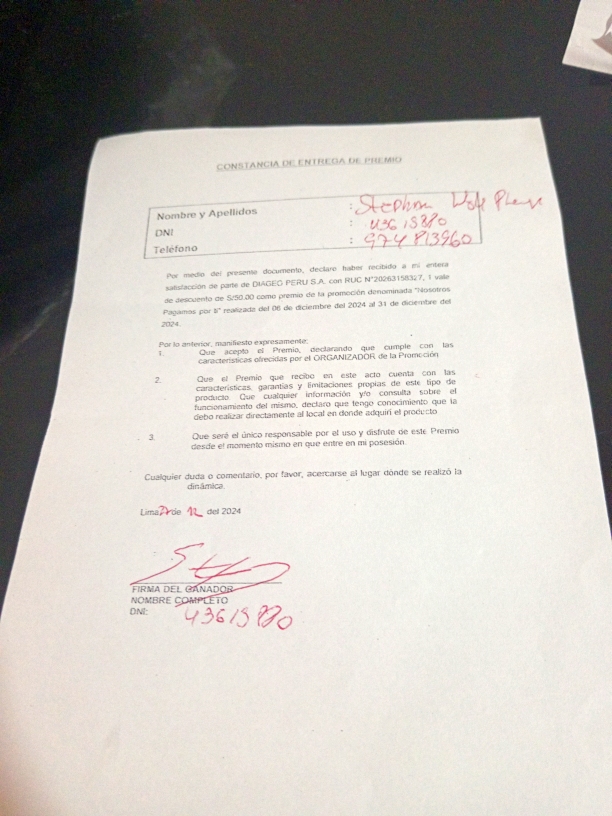 CONSTANCIA DE ENTREGA DE PREMIO
Nombre y Apellidos : Stephon
DNI : 43615880
Teléfono : 974813960
Por medio del presense documento, declaro haber recibido a mi entera
satisfacción de parte de DIAGEO PERU S.A. con RUC N°20263158327, 1 vale
de descuento de S/50.00 como premio de la promoción denominada "Nosotros
Pagamos por ti" realizada del 06 de diciembre del 2024 al 31 de diciembre del
2024.
Por lo anterior, manifiesto expresamente.
1. Que acepto el Premio, declarando que cumple con las
características ofrecidas por el ORGANIZADOR de la Promoción
2. Que el Premio que recibo en este acto cuenta con las
características, garantías y limitaciones propias de este tipo de
producto. Que cualquier información y/o consulta sobre el
funcionamiento del mismo, declaro que tengo conocimiento que la
debo realizar directamente al local en donde adquirí el producto
3. Que seré el único responsable por el uso y disfrute de este Premio
desde el momento mismo en que entre en mi posesión.
Cualquier duda o comentario, por favor, acercarse al lugar donde se realizó la
dinámica.
Lima de 12 del 2024
FIRMA DEL GANADOR
NOMBRE COMPLETO
DNI: 43615880